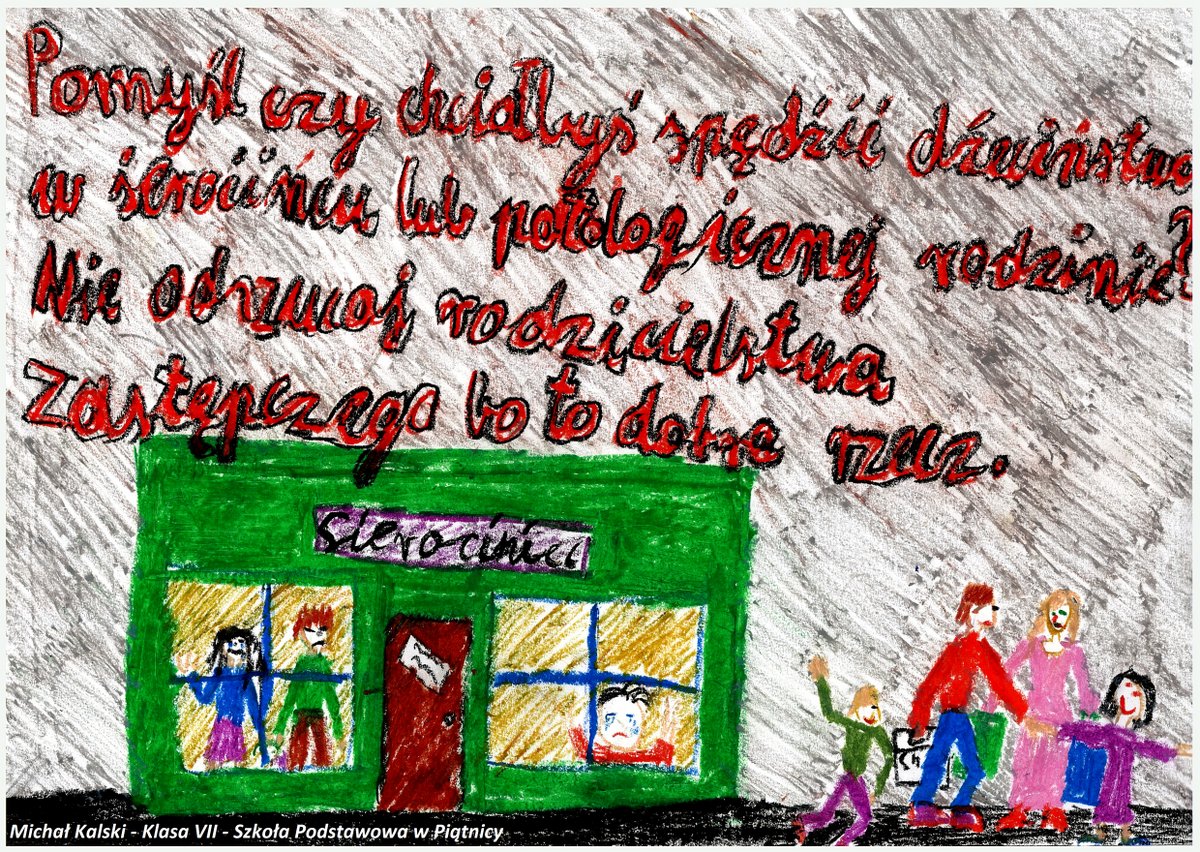 Pomyśl czy chciałbyś spędzić dzieciństwo
w sierocińcu lub patologicznej rodzinie?
Nie odrzucaj rodzicielstwa
zastępczego bo to dobra rzecz.
Sierociniec
Michał Kalski - Klasa VII - Szkoła Podstawowa w Piątnicy